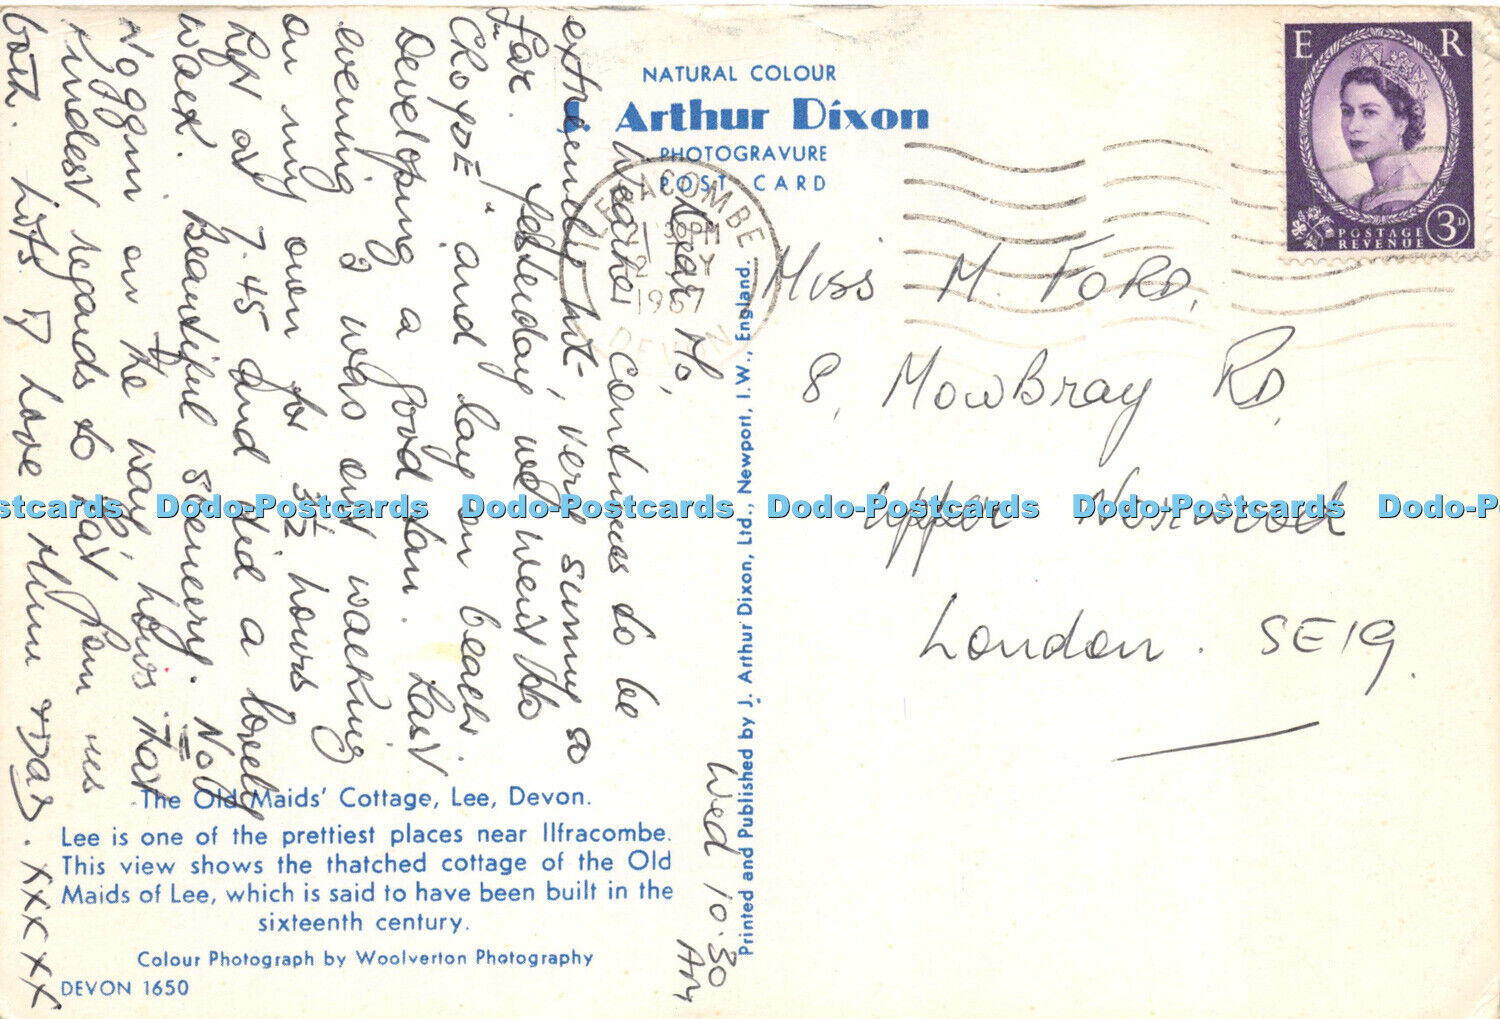 NATURAL COLOUR
J. Arthur Dixon
PHOTOGRAVURE
POST CARD
E R
POSTAGE
REVENUE
3D
ILFRACOMBE
30 PM
1967
DEVON
Wed 10.30
AM
Dear Mo,
Weather continues to be
extremely hot, very sunny so
far. Yesterday we went to
"CROYDE" and lay on beach
Developing a good tan. Last
evening I was out walking
on my own for 3½ hours
left at 7.45 and did a lovely
walk. Beautiful scenery. No
Noggin on the way, hows that
Kindest regards to Pat from us
both. Lots of love Mum + Dad. XXXXX
Miss M. FORD,
8, MowBray RD,
Upper Norwood
London. SE19.
Printed and Published by J. Arthur Dixon, Ltd., Newport, I.W., England.
The Old Maids' Cottage, Lee, Devon.
Lee is one of the prettiest places near Ilfracombe.
This view shows the thatched cottage of the Old
Maids of Lee, which is said to have been built in the
sixteenth century.
Colour Photograph by Woolverton Photography
DEVON 1650
Postcards Dodo-Postcards Dodo-Postcards Dodo-Postcards Dodo-Postcards Dodo-P